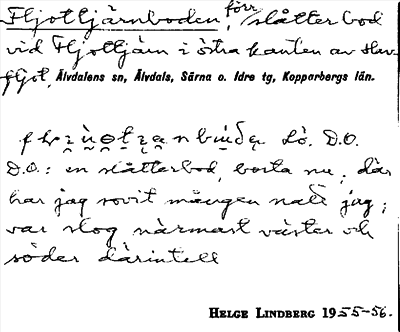 Fljottjärnboden, förr slåtterbod
vid Fljottjärn i östra kanten av Slav-
fljot, Älvdalens sn, Älvdals, Särna o. Idre tg, Kopparbergs län.
Lö. D.O.
D.O.: en slåtterbod, borta nu; där
har jag sovit mången natt jag;
var slog närmast väster och
söder därintill
HELGE LINDBERG 1955-56.